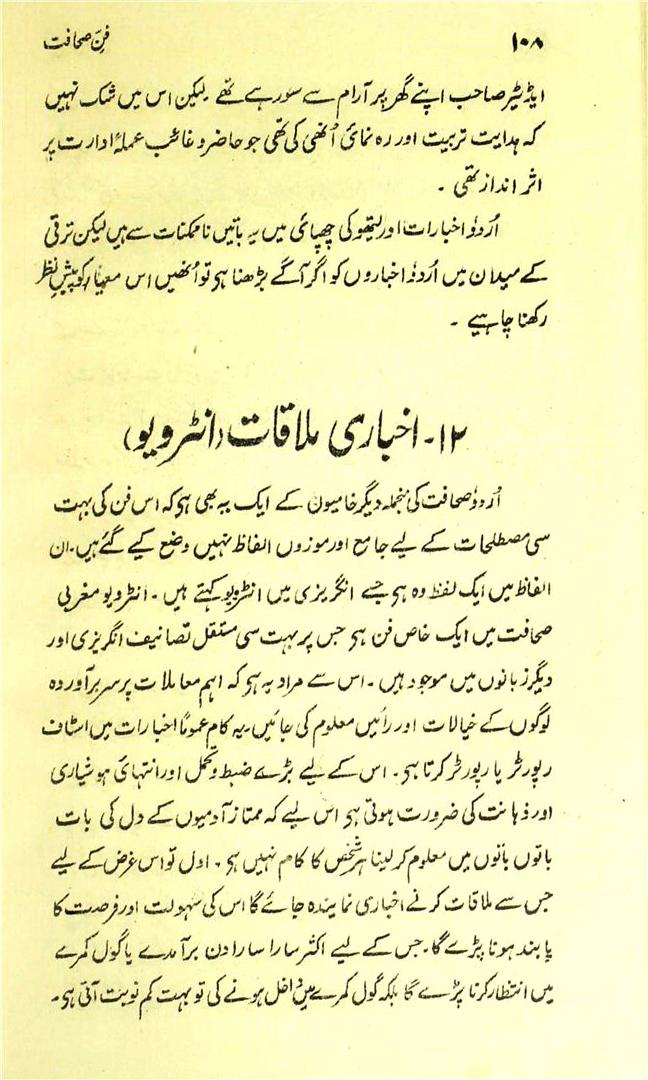 ۱۰۸
فنِ صحافت
ایڈیٹر صاحب اپنے گھر پر آرام سے سو رہے تھے لیکن اس میں شک نہیں
کہ ہدایت تربیت اور رہ نمائی اُنھی کی تھی جو حاضر و غائب عملۂ ادارت پر
اثر انداز تھی ۔
اُردو اخبارات اور لیتھو کی چھپائی میں یہ باتیں ناممکنات سے ہیں لیکن ترقی
کے میدان میں اُردو اخباروں کو اگر آگے بڑھنا ہی تو اُنھیں اس معیار کو پیشِ نظر
رکھنا چاہیے ۔
۱۲۔ اخباری ملاقات (انٹرویو)
اُردو صحافت کی منجملہ دیگر خامیوں کے ایک یہ بھی ہی کہ اس فن کی بہت
سی مصطلحات کے لیے جامع اور موزوں الفاظ نہیں وضع کیے گئے ہیں۔ ان
الفاظ میں ایک لفظ وہ ہی جسے انگریزی میں انٹرویو کہتے ہیں ۔ انٹرویو مغربی
صحافت میں ایک خاص فن ہی جس پر بہت سی مستقل تصانیف انگریزی اور
دیگر زبانوں میں موجود ہیں ۔ اس سے مراد یہ ہی کہ اہم معاملات پر سربرآوردہ
لوگوں کے خیالات اور رائیں معلوم کی جائیں۔ یہ کام عموماً اخبارات میں اسٹاف
رپورٹر یا رپورٹر کرتا ہی ۔ اس کے لیے بڑے ضبط و تحمل اور انتہائی ہوشیاری
اور ذہانت کی ضرورت ہوتی ہی اس لیے کہ ممتاز آدمیوں کے دل کی بات
باتوں باتوں میں معلوم کر لینا ہر شخص کا کام نہیں ہی ۔ اول تو اس غرض کے لیے
جس سے ملاقات کرنے اخباری نمایندہ جائے گا اس کی سہولت اور فرصت کا
پابند ہونا پڑے گا۔ جس کے لیے اکثر سارا سارا دن برآمدے یا گول کمرے
میں انتظار کرنا پڑے گا بلکہ گول کمرے میں داخل ہونے کی تو بہت کم نوبت آتی ہی ۔